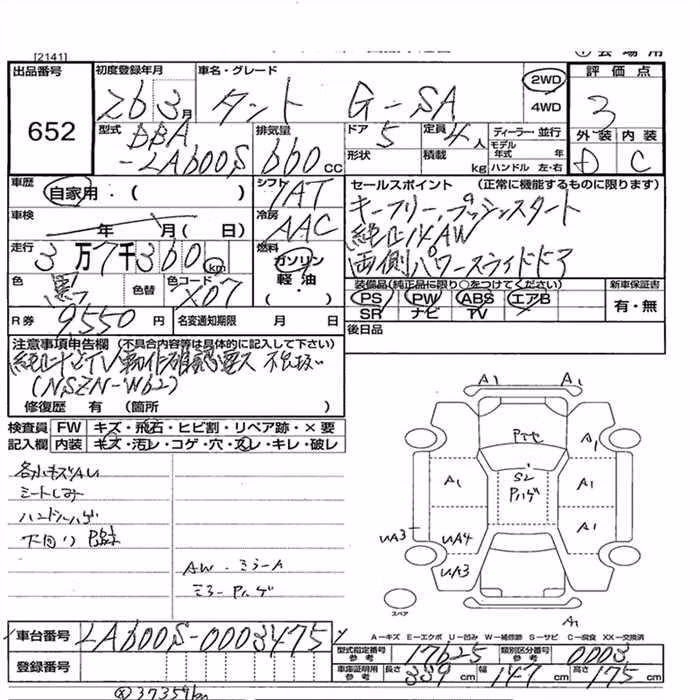 [2141]
出品番号 初度登録年月 車名・グレード 評価点
652 26 3月 タント G-SA 2WD 4WD 3
型式 排気量 ドア 定員 ディーラー・並行 外装 内装
DBA-LA600S 660cc 5 4人 モデル年式 年 D C
形状 積載 kg ハンドル 左・右
車歴 自家用・( ) シフト IAT セールスポイント (正常に機能するものに限ります)
車検 年 月 ( 日) 冷房 AAC キーフリー、プッシュスタート
純正14AW
走行 3万7千360km 燃料 ガソリン 軽油・ 両側パワースライドドア
色 黒 色替 色コード X07 装備品(純正品に限り○をつけてください) 新車保証書
PS PW ABS エアB 有・無
SR ナビ TV
R券 9,550円 名変通知期限 月 日 後日品
注意事項申告欄 (不具合内容等は具体的に記入して下さい)
(NSZN-W62)
修復歴 有 (箇所 )
検査員 FW キズ・飛石・ヒビ割・リペア跡・×要
記入欄 内装 キズ・汚レ・コゲ・穴・スレ・キレ・破レ
シートしみ
ハンドルハゲ
AW・ミラーA
ミラーPハゲ
A1 A1
A1
A1 A1
S2
Pハゲ
A1
UA3 UA4
UA3
スペア
A1
A-キズ E-エクボ U-凹み W-補修跡 S-サビ C-腐食 XX-交換済
車台番号 LA600S-0003475
型式指定番号 参考 17625 類別区分番号 参考 0003
登録番号
車庫証明用 参考 長さ 339cm 幅 147cm 高さ 175cm
37359km